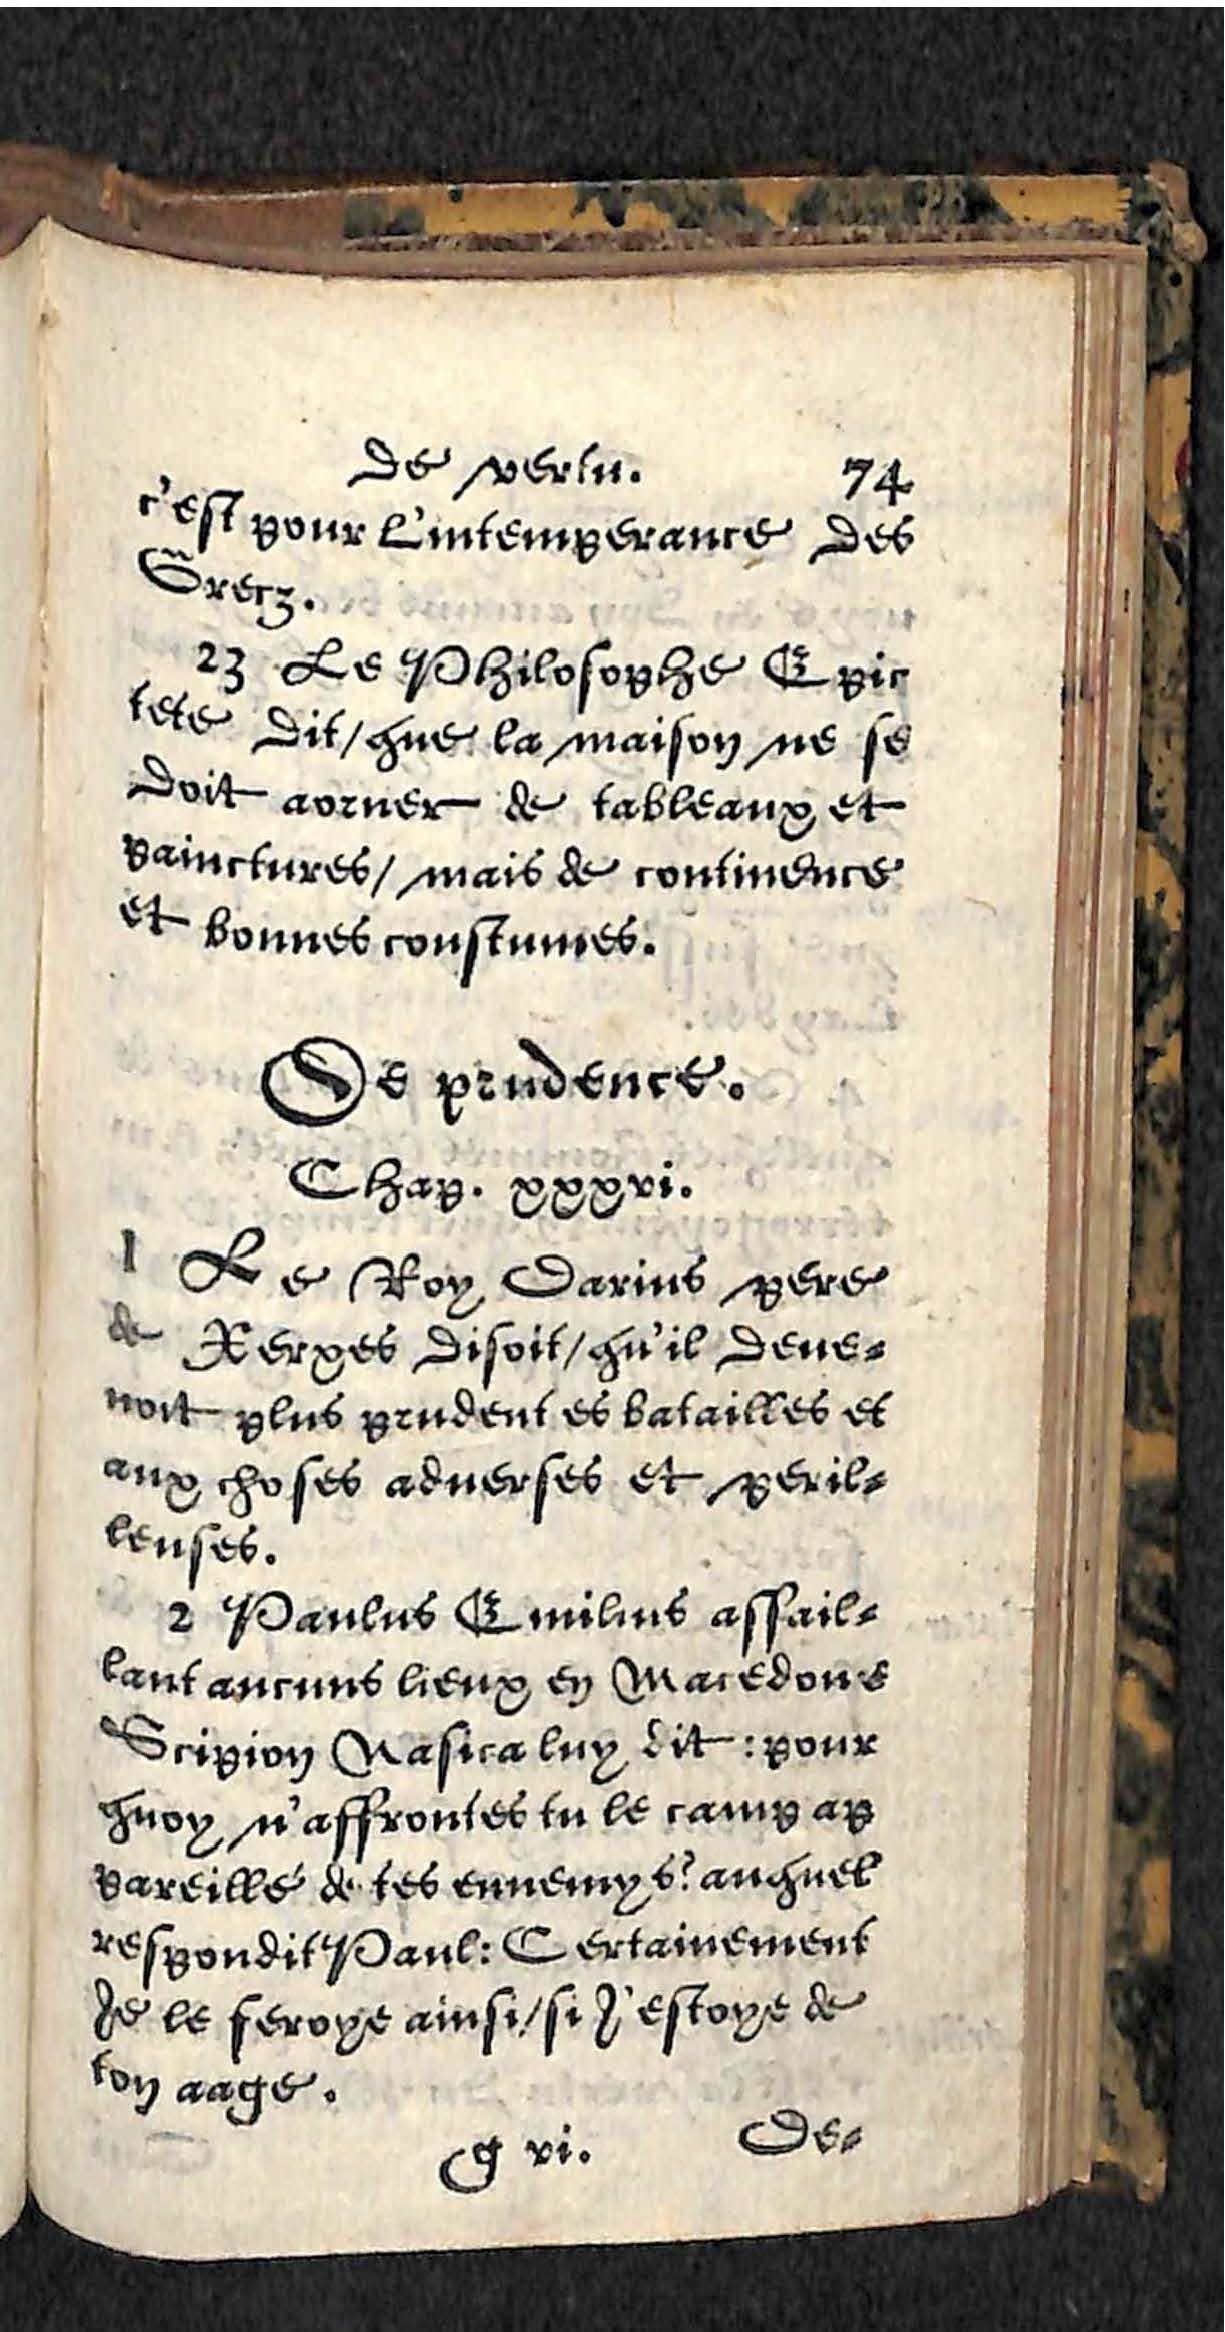 de vertu. 74
c'est pour L'intemperance des
Grecz.
23 Le Philosophe Epic
tete dit/ que la maison ne se
doit aorner de tableaux et
painctures/ mais de continence
et bonnes coustumes.
De prudence.
Chap. xxxvi.
1 Le Roy Darius pere
de Xerxes disoit/ qu'il deue-
noit plus prudent es batailles et
aux choses aduerses et peril-
leuses.
2 Paulus Emilius assail-
lant aucuns lieux en Macedone
Scipion Nasica luy dit : pour
quoy n'affrontes tu le camp ap
pareillé de tes ennemys? auquel
respondit Paul: Certainement
Je le feroye ainsi/ si J'estoye de
ton aage.
g vi. De-